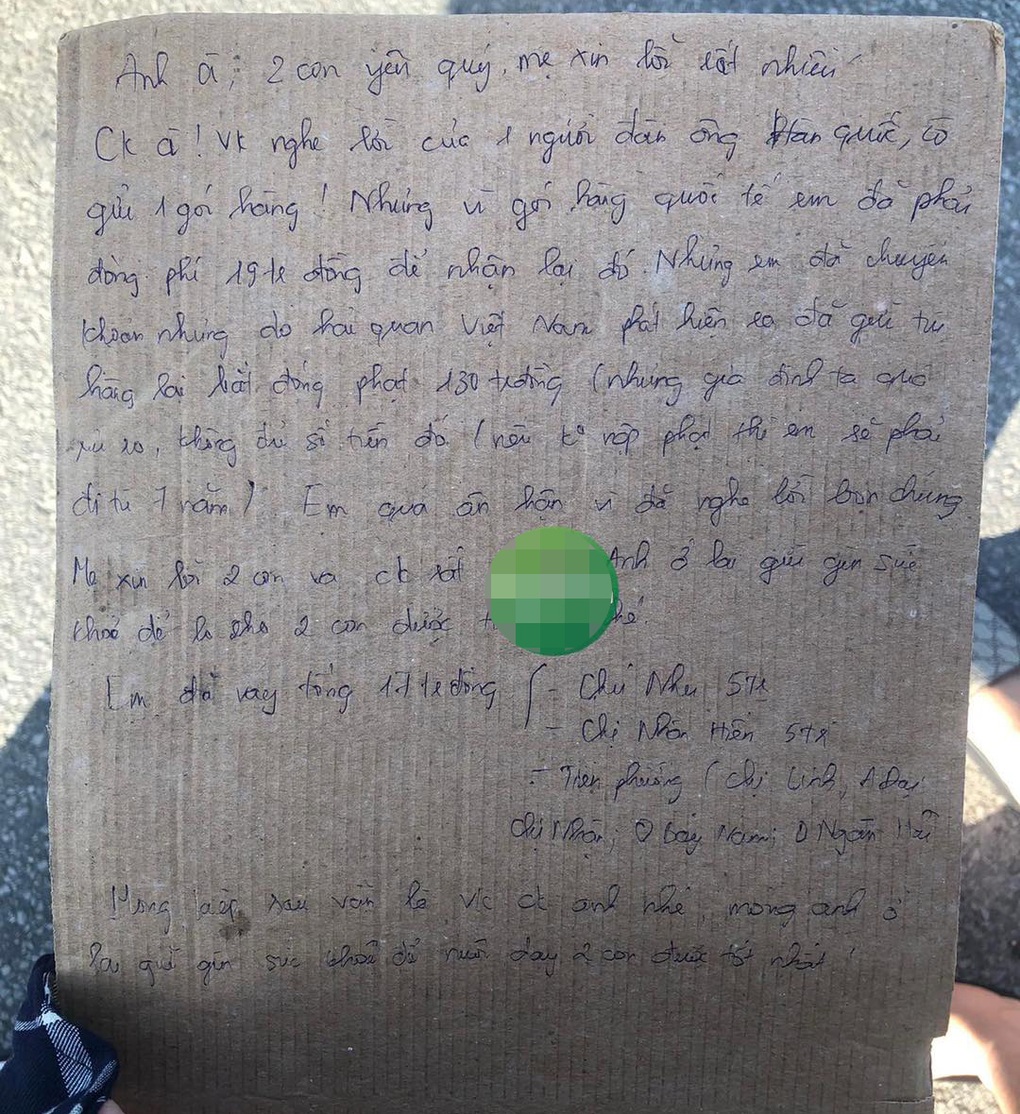 Anh à; 2 con yêu quý, mẹ xin lỗi rất nhiều
Ck à! Vk nghe lời của 1 người đàn ông Hàn quốc, có
gửi 1 gói hàng! Nhưng vì gói hàng quốc tế em đã phải
đóng phí 19tr đồng để nhận lại đó. Nhưng em đã chuyển
khoản nhưng do hải quan Việt Nam phát hiện ra đã gửi
hàng lại bắt đóng phạt 130 trđồng (nhưng gia đình ta quá
, không đủ số tiền đó (nếu k° nộp phạt thì em sẽ phải
đi tù 7 năm) Em quá ân hận vì đã nghe lời bọn chúng
Mẹ xin lỗi 2 con và ck rất Anh ở lại giữ gìn sức
khoẻ để lo cho 2 con được nhé.
Em đã vay tổng 17 trđồng - Chú Như 5tr
- Chị Nhân Hiền 5tr
- Tiền phường (chị Linh, A Đại
chị Nhân; O bảy Nam; O Ngân
Mong kiếp sau vẫn là vk ck anh nhé, mong anh ở
lại giữ gìn sức khoẻ để nuôi dạy 2 con được tốt nhất!